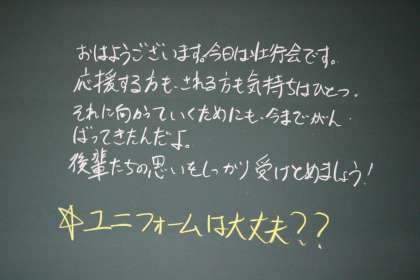 おはようございます。今日は壮行会です。
応援する方も、される方も気持ちはひとつ。
それに向かっていくためにも、今までがん
ばってきたんだよ。
後輩たちの思いをしっかり受けとめましょう!
☆ユニフォームは大丈夫??